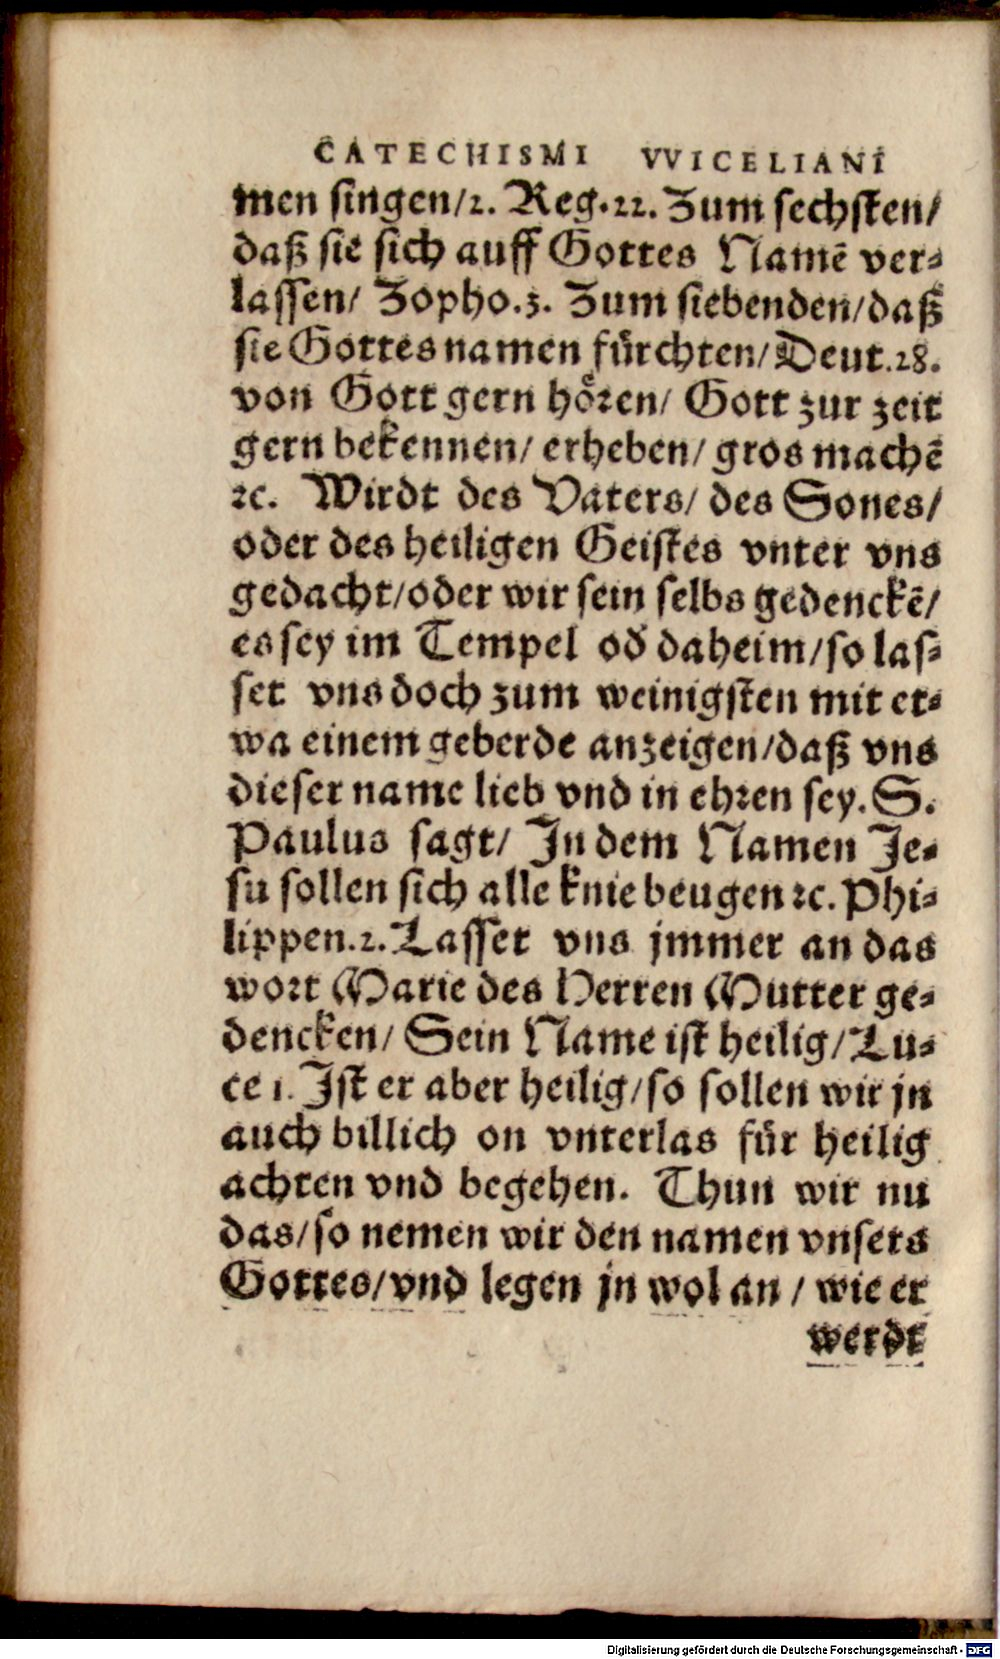 CATECHISMI VVICELIANI
men singen/2. Reg. 22. Zum sechsten/
daß sie sich auff Gottes Namē ver-
lassen/ Zopho. 3. Zum siebenden/daß
sie Gottes namen fürchten/Deut. 28.
von Gott gern hören/ Gott zur zeit
gern bekennen/ erheben/ gros machē
ꝛc. Wirdt des Vaters/ des Sones/
oder des heiligen Geistes vnter vns
gedacht/oder wir sein selbs gedenckē/
es sey im Tempel od̕ daheim/so las-
set vns doch zum weinigsten mit et-
wa einem geberde anzeigen/daß vns
dieser name lieb vnd in ehren sey. S.
Paulus sagt/ In dem Namen Je-
su sollen sich alle knie beugen ꝛc. Phi-
lippen. 2. Lasset vns jmmer an das
wort Marie des Herren Mutter ge-
dencken/ Sein Name ist heilig/Lu-
ce 1. Ist er aber heilig/so sollen wir jn
auch billich on vnterlas für heilig
achten vnd begehen. Thun wir nu
das/so nemen wir den namen vnsers
Gottes/vnd legen jn wol an / wie er
werdt
Digitalisierung gefördert durch die Deutsche Forschungsgemeinschaft - DFG